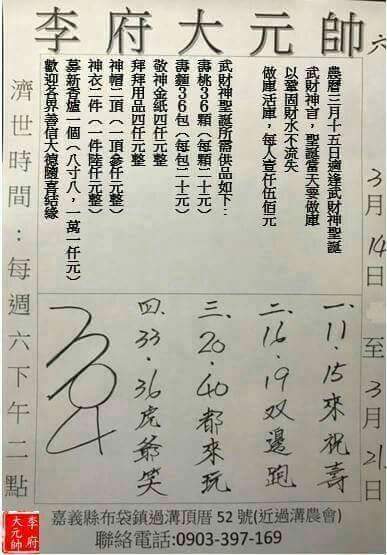 李府大元帥
六
3月14日至3月21日
農曆三月十五日適逢武財神聖誕
武財神言，聖誕當天要做庫
以鞏固財水不流失
做庫活庫，每人壹仟伍佰元
武財神聖誕所需供品如下：
壽桃36顆（每顆二十元）
壽麵36包（每包二十元）
敬神金紙四仟元整
拜拜用品四仟元整
神帽二頂（一頂參仟元整）
神衣二件（一件陸仟元整）
募新香爐一個（八寸八，一萬一仟元）
歡迎各界善信大德隨喜結緣
濟世時間：每週六下午二點
一、11．15來祝壽
二、16．19双邊跑
三、20．40都來玩
四、33．36虎爺笑
304
嘉義縣布袋鎮過溝頂厝52號(近過溝農會)
聯絡電話:0903-397-169
李府
大元帥